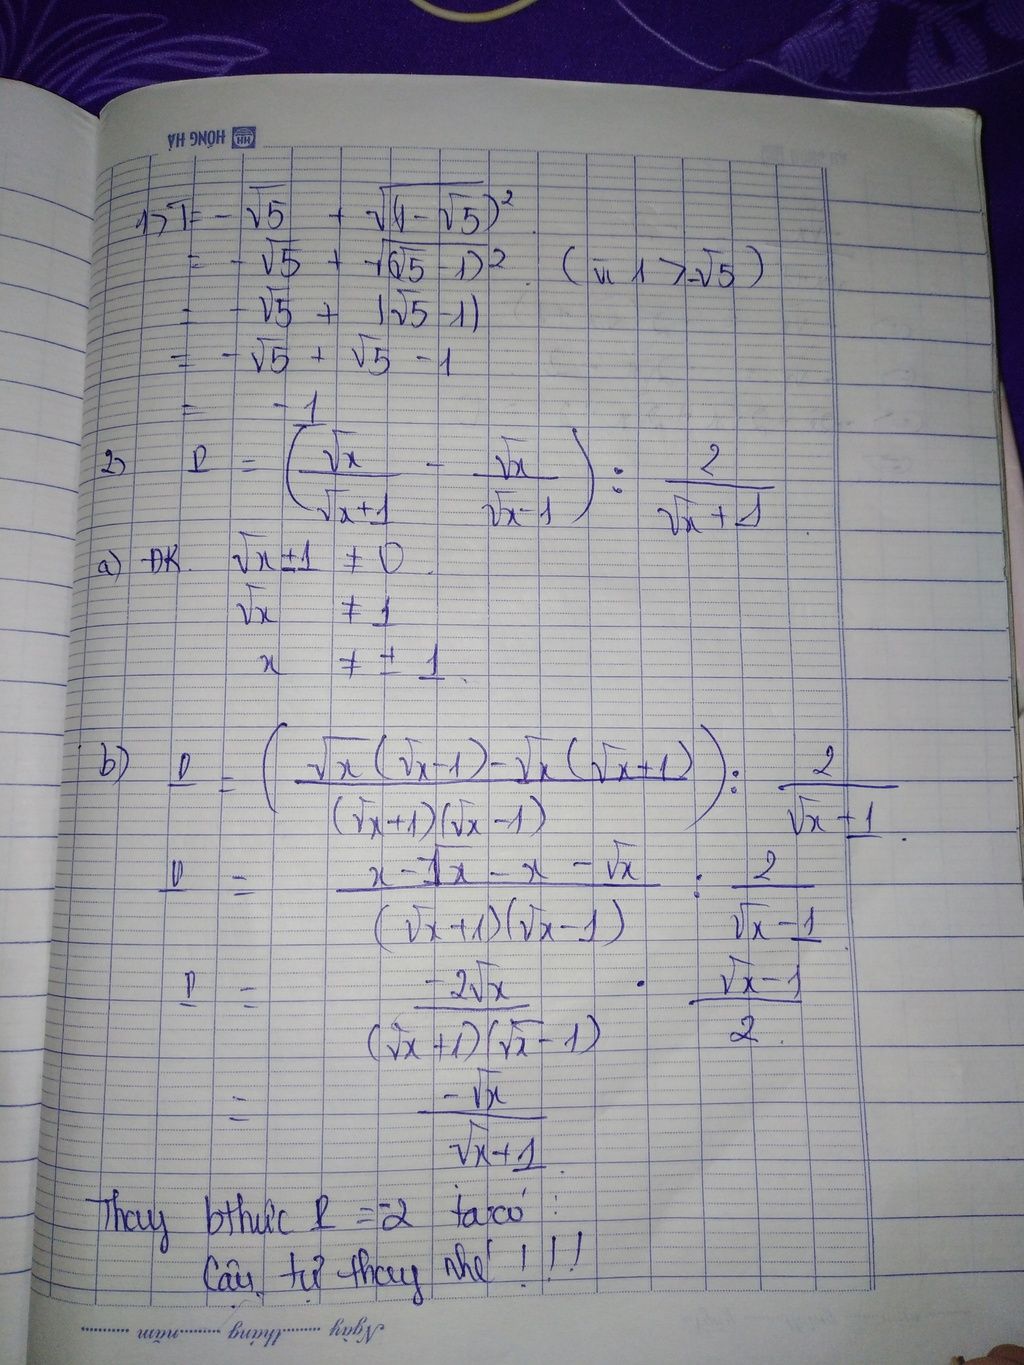 HỒNG HÀ
1) T = - √5 + √(1 - √5)²
= - √5 + √(√5 - 1)² (vì 1 > √5)
= - √5 + |√5 - 1|
= - √5 + √5 - 1
= - 1
2) P = (√x/(√x+1) - √x/(√x-1)) : 2/(√x+1)
a) ĐK. √x ± 1 ≠ 0
√x ≠ 1
x ≠ ± 1.
b) P = ((√x(√x-1) - √x(√x+1))/((√x+1)(√x-1))) : 2/(√x+1).
P = (x - √x - x - √x)/((√x+1)(√x-1)) : 2/(√x-1)
P = -2√x/((√x+1)(√x-1)) . (√x-1)/2.
= -√x/(√x+1).
Thay bthức P = -2 ta có :
Cậu tự thay nhé !!!
Ngày ........ tháng ........ năm ............